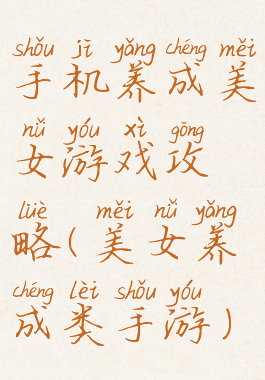 shǒu jī yǎng chéng měi
手机养成美
nǚ yóu xì gōng
女游戏攻
lüè měi nǚ yǎng
略(美女养
chéng lèi shǒu yóu
成类手游)